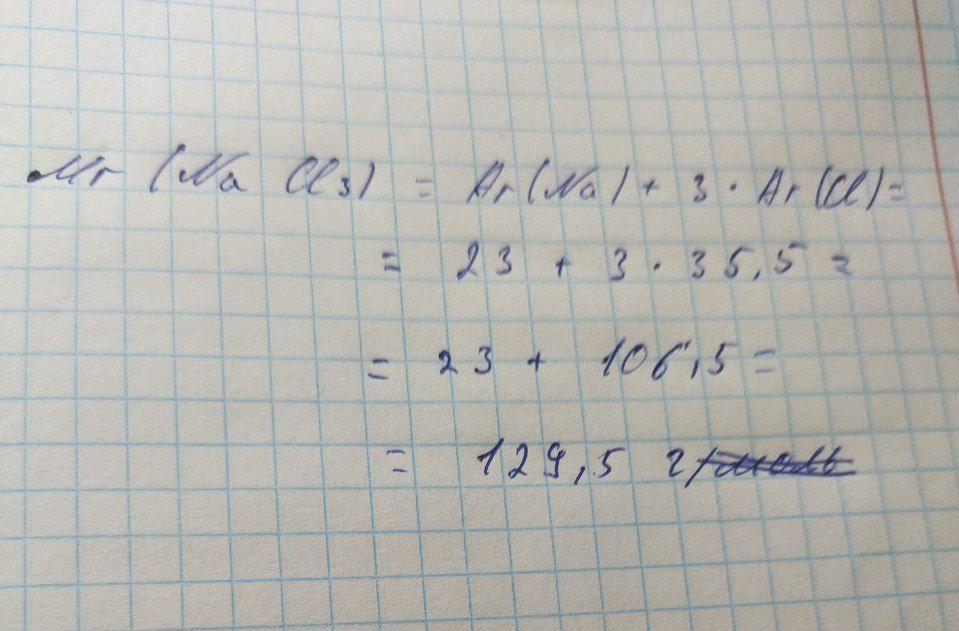 Mr (Na Cl₃) = Ar(Na) + 3 · Ar(Cl) =
= 23 + 3 · 35,5 =
= 23 + 106,5 =
= 129,5 г/моль